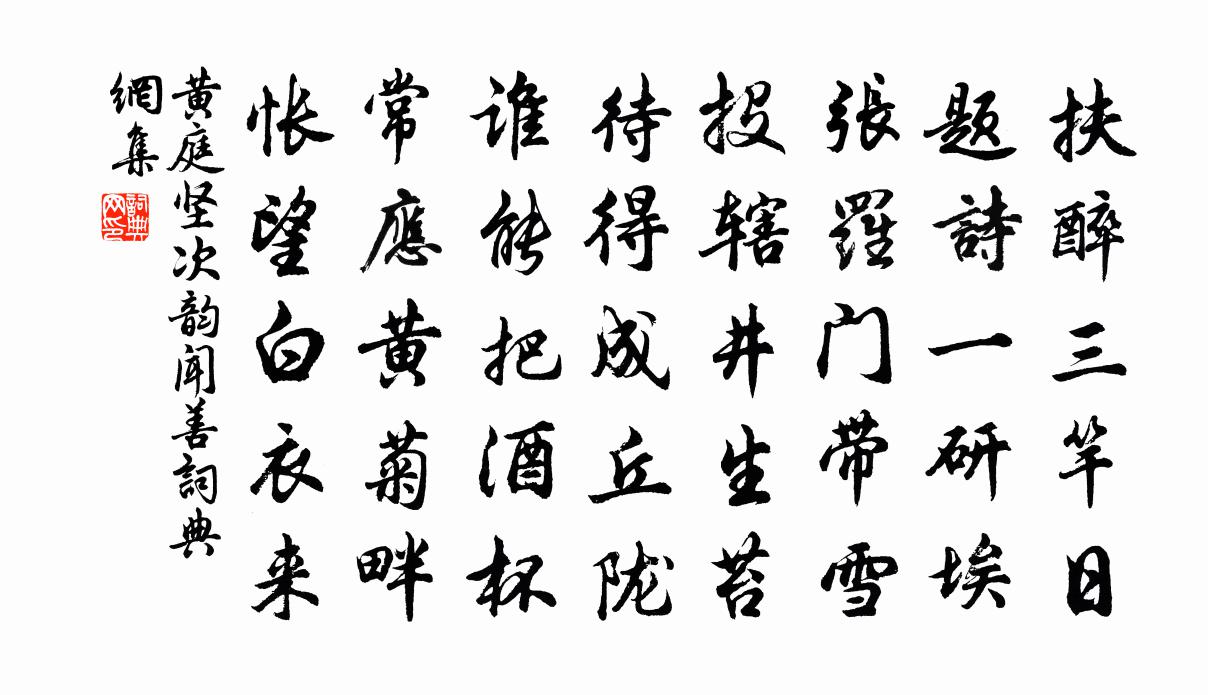 扶醉三竿日
题詩一研埃
張羅门带雪
投辖井生苔
待得成丘陇
谁能把酒杯
常應黄菊畔
怅望白衣来
黄庭坚次韵闻善詞典
網集
詞典
网印